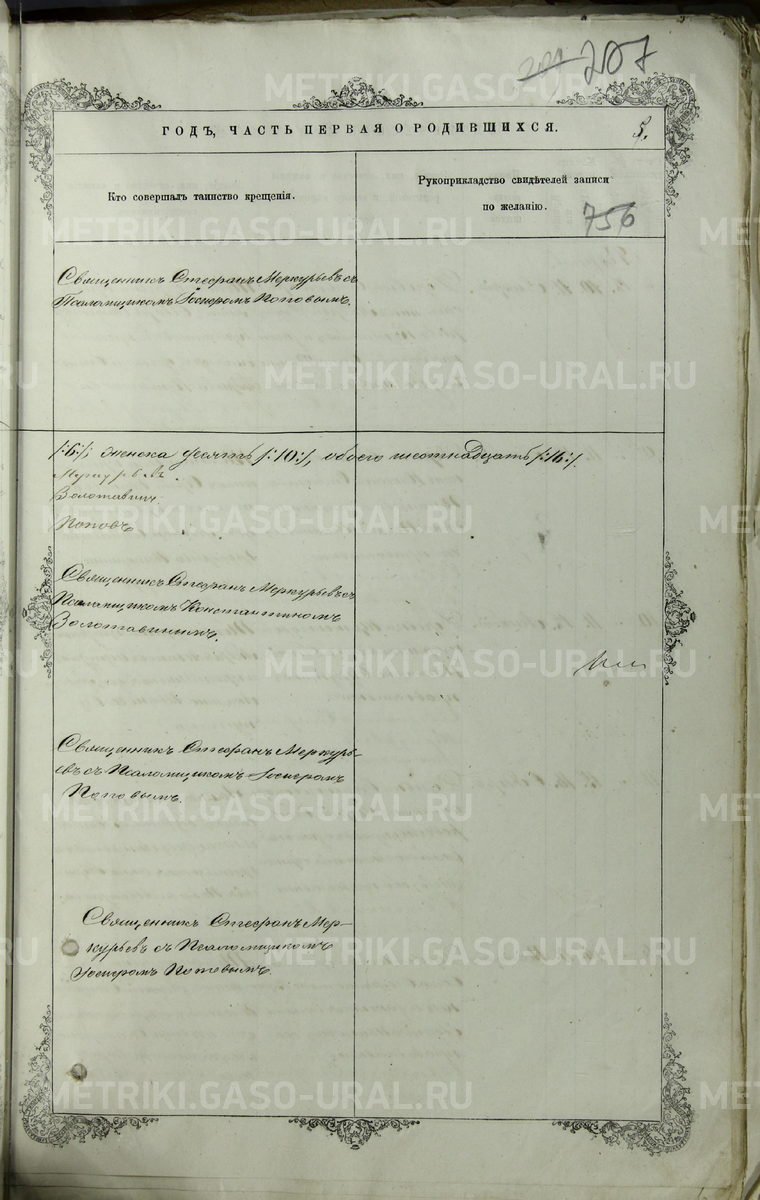 207
ГОДЪ, ЧАСТЬ ПЕРВАЯ О РОДИВШИХСЯ.
5.
Кто совершалъ таинство крещенія.
Рукоприкладство свидѣтелей записи
по желанію.
756
Священникъ Стефанъ Меркурьевъ съ
Псаломщикомъ Іосифомъ Поповымъ.
/:6:/; женска десять /:10:/, обоего шестнадцать /:16:/.
Меркурьевъ.
Золотавинъ
Поповъ
Священникъ Стефанъ Меркурьевъ съ
Псаломщикомъ Константиномъ
Золотавинымъ.
Священникъ Стефанъ Меркурь-
евъ съ Псаломщикомъ Іосифомъ
Поповымъ.
Священникъ Стефанъ Мер-
курьевъ съ Псаломщикомъ
Іосифомъ Поповымъ.
METRIKI.GASO-URAL.RU